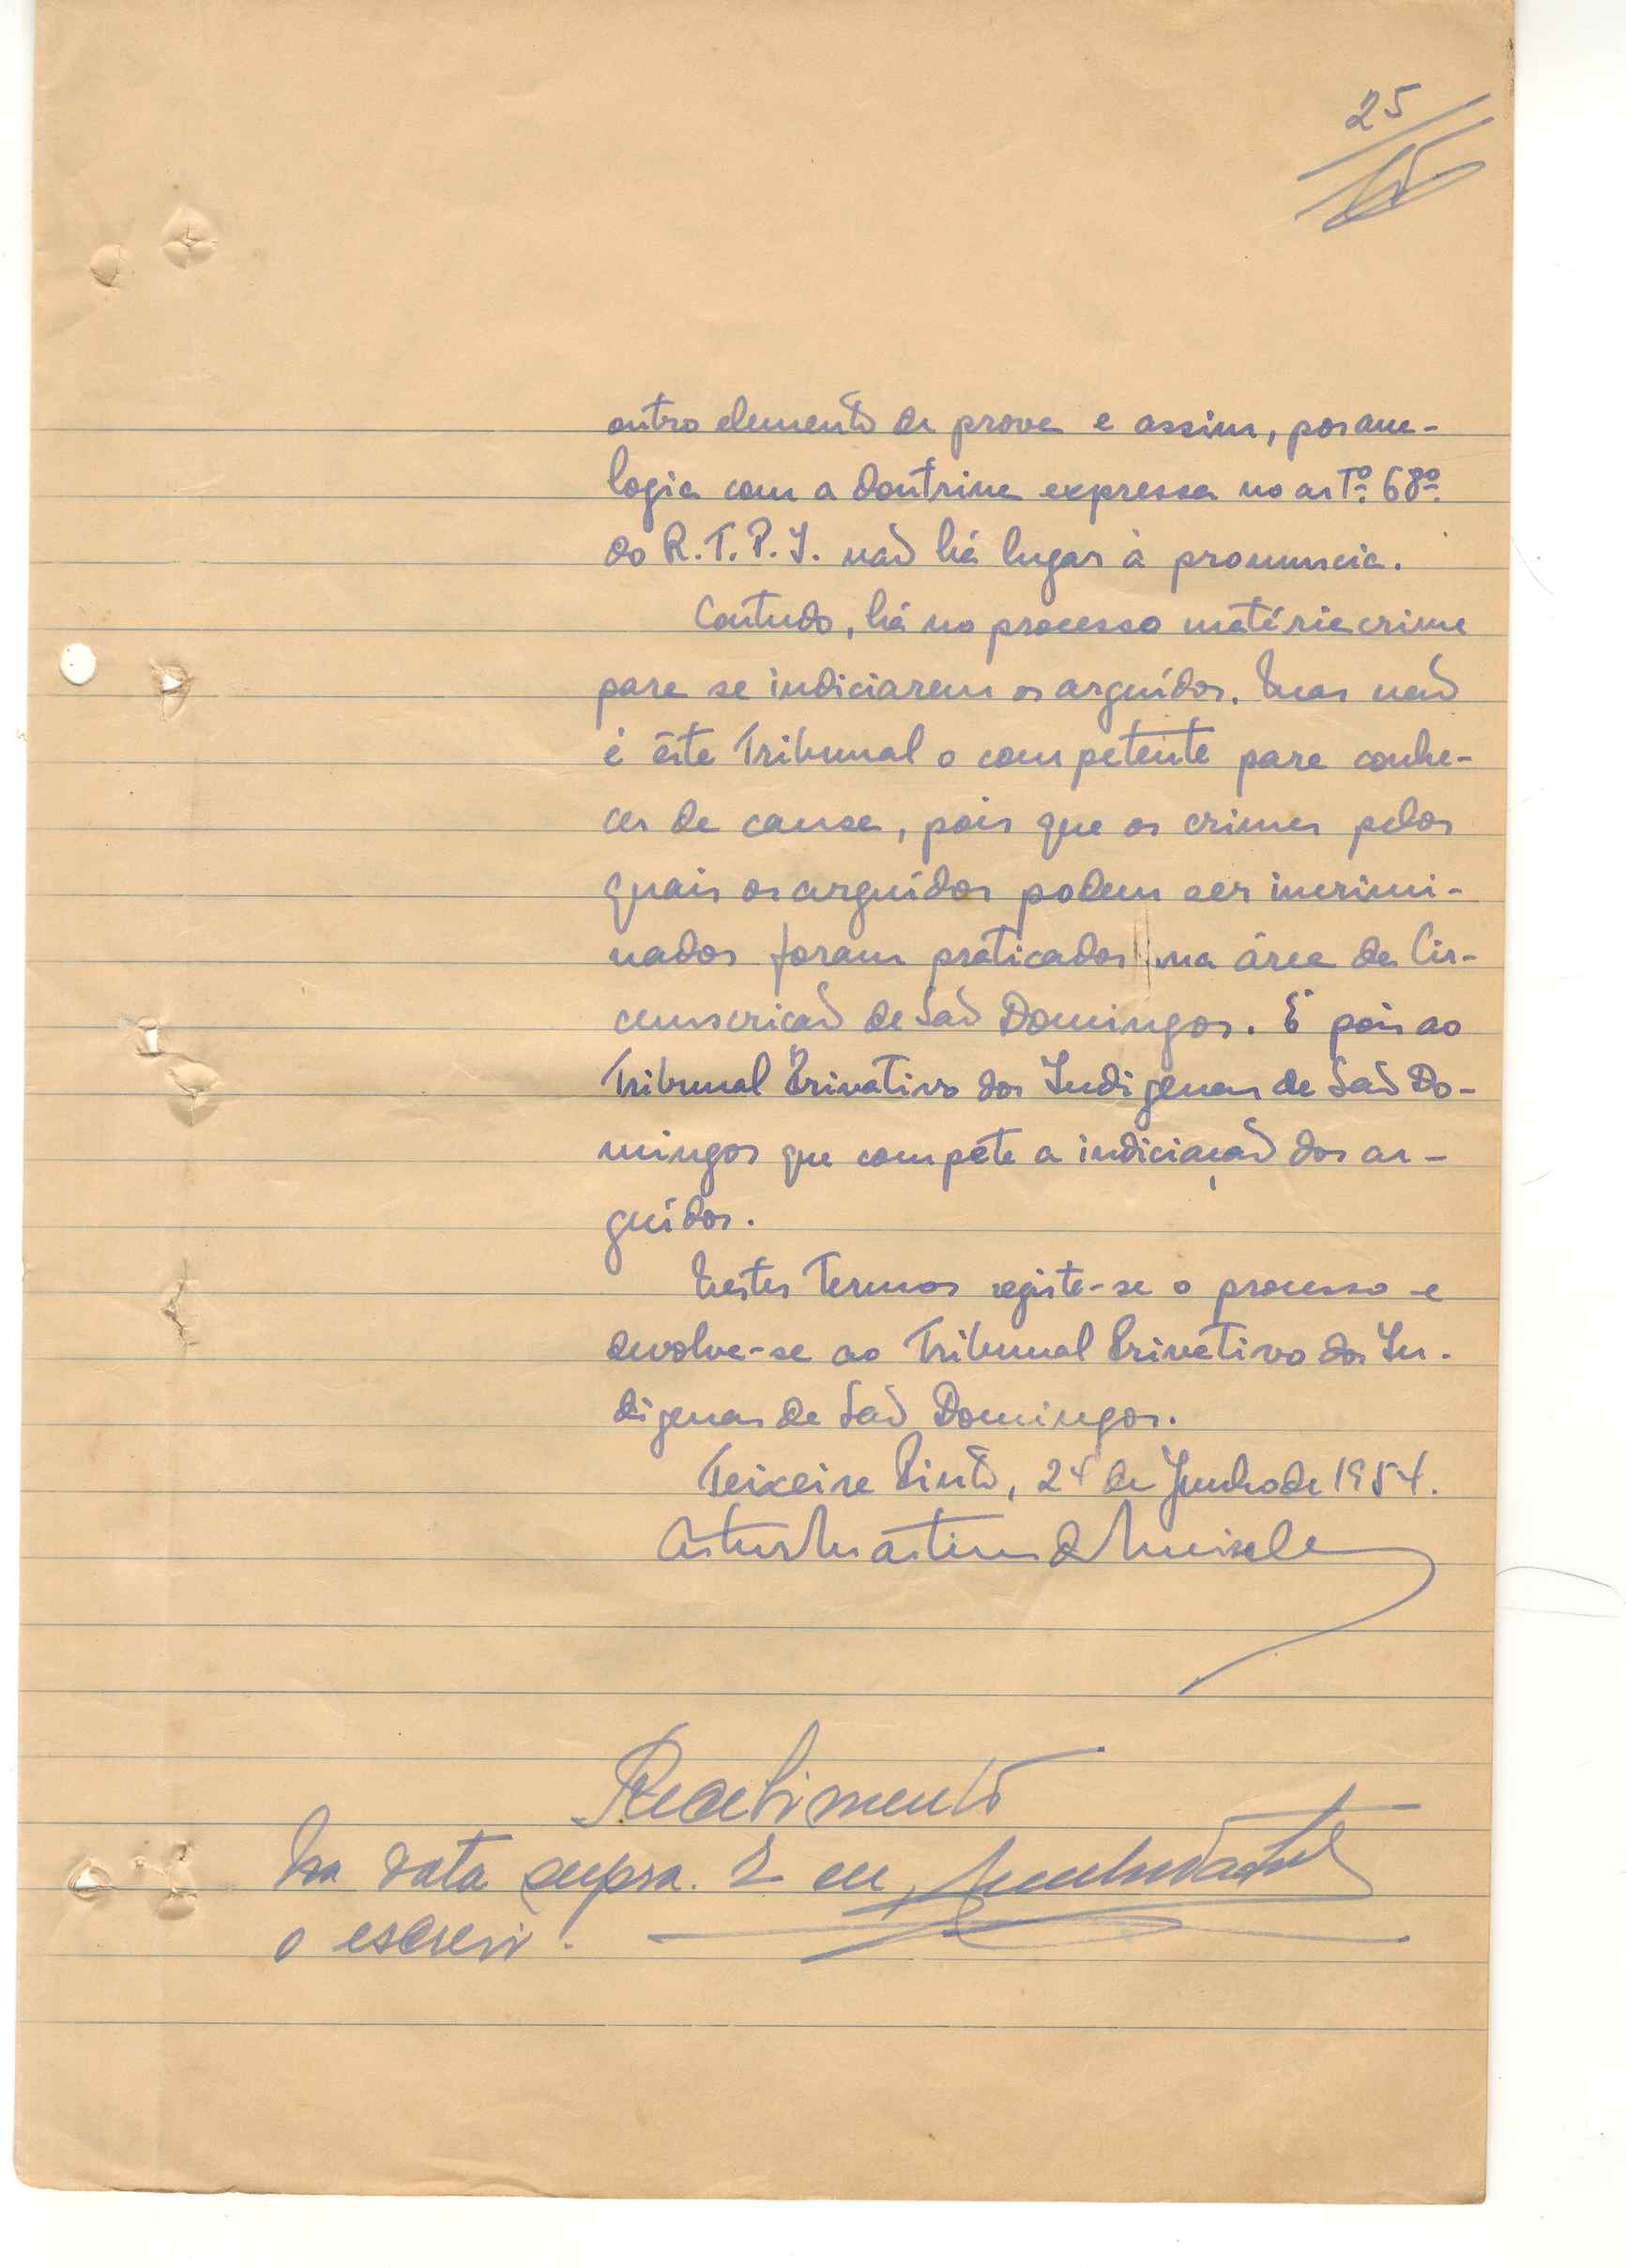 25
outro elemento de prova e assim, por ana-
logia com a doutrina expressa no artº. 68º.
do R.T.P.I. não há lugar à pronuncia.
Contudo, há no processo matéria crime
para se indiciarem os arguídos. Mas não
é êste Tribunal o competente para conhe-
cer da causa, pois que os crimes pelos
quais os arguídos podem ser incrimi-
nados foram praticados na área da Cir-
cunscrição de São Domingos. É pois ao
Tribunal Privativo dos Indigenas de São Do-
mingos que compete a indiciação dos ar-
guídos.
Nestes termos registe-se o processo e
devolva-se ao Tribunal Privativo dos In-
digenas de São Domingos.
Teixeira Pinto, 24 de Junho de 1954.
Artur Martins de Meireles
Recebimento
Na data supra. E eu,
o escrevi.